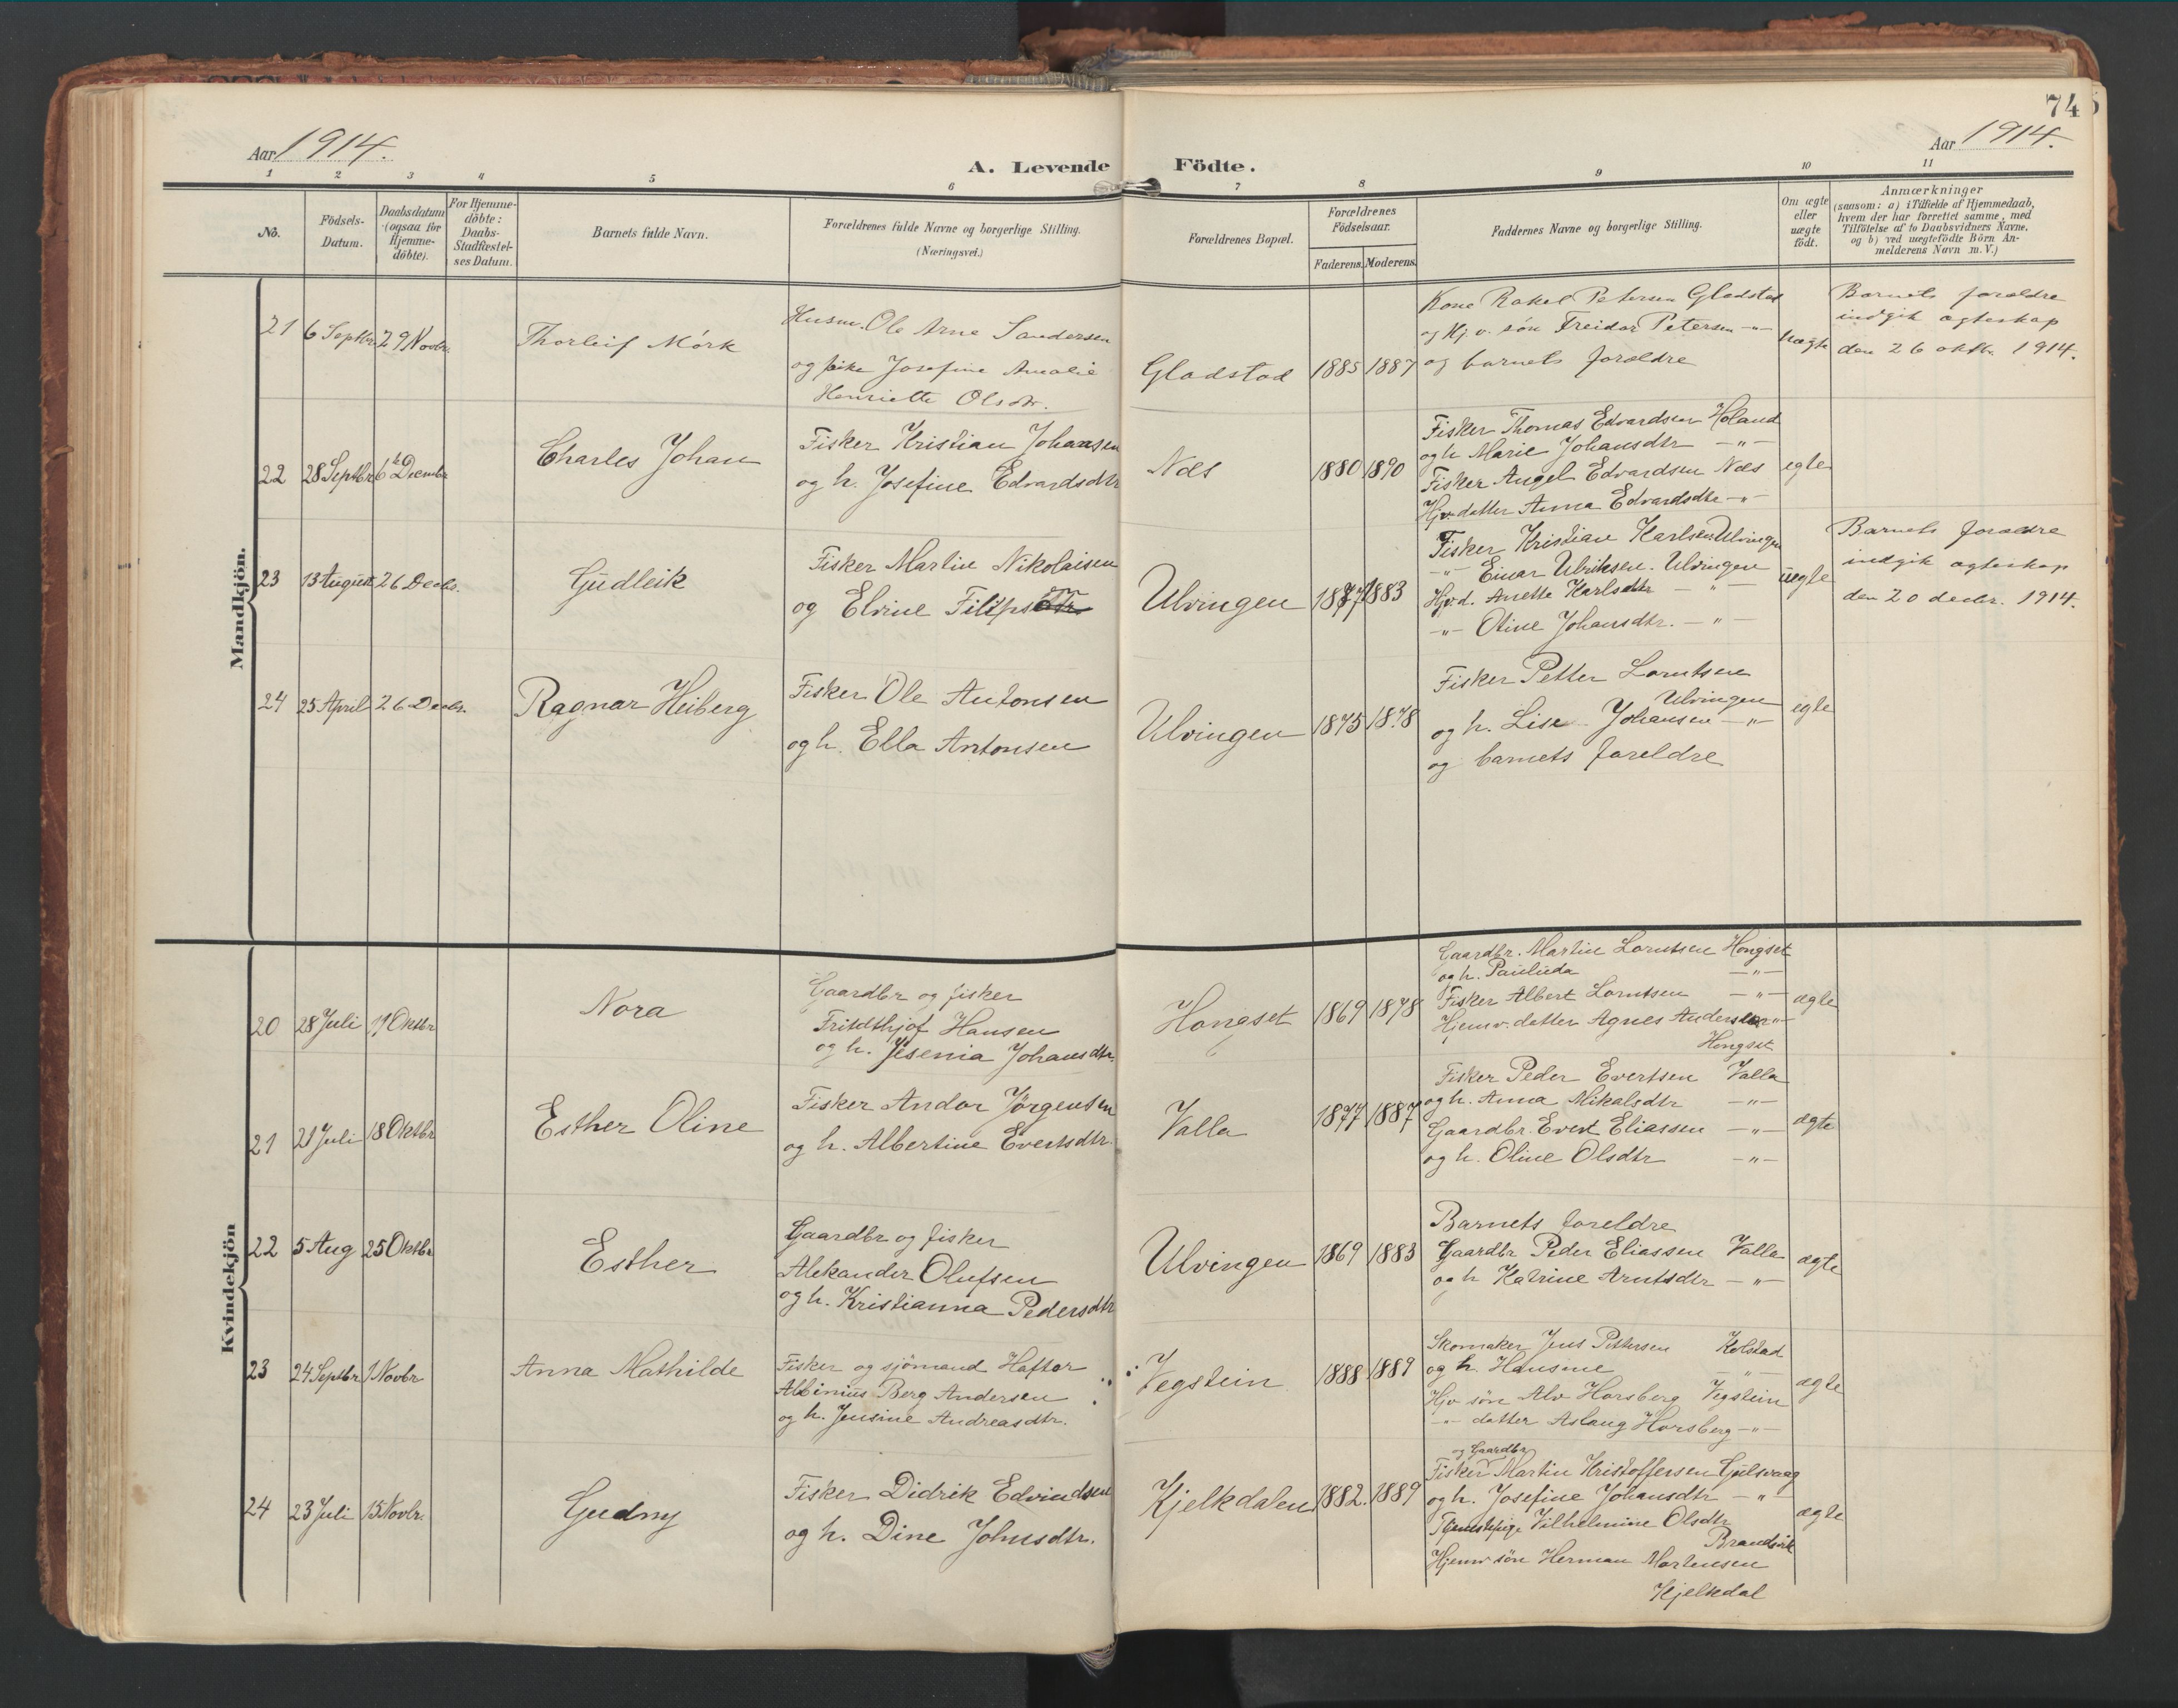 74
Aar 1914.
A. Levende Födte.
Aar 1914.
1 2 3 4 5 6 7 8 9 10 11
No.
Födsels-
Datum.
Daabsdatum
(ogsaa for
Hjemme-
döbte).
For Hjemme-
döbte:
Daabs-
Stadfæstel-
ses Datum.
Barnets fulde Navn.
Forældrenes fulde Navne og borgerlige Stilling.
(Næringsvei.)
Forældrenes Bopæl.
Forældrenes
Födselsaar.
Faderens. Moderens.
Faddernes Navne og borgerlige Stilling.
Om ægte
eller
uægte
födt.
Anmærkninger
(saasom: a) i Tilfælde af Hjemmedaab,
hvem der har forrettet samme, med
Tilföielse af to Daabsvidners Navne,
og b) ved uægtefödte Börn An-
melderens Navn m.V.)
Mandkjön.
21 6 Septbr. 29 Novbr.
Thorleif Mörk
Husm. Ole Arne Sandersen
og pike Josefine Amalie
Henriette Olsdtr.
Gladstad 1885 1887
Kone Rakel Petersen Gladstad
og Hj.v. sön Freidar Petersen -"-
og barnets forældre
Uægte
Barnets forældre
indgik ægteskap
den 26 oktbr. 1914.
22 28 Septbr 6te Decembr
Charles Johan
Fisker Kristian Johansen
og h. Josefine Edvardsdtr
Næs 1880 1890
Fisker Thomas Edvardsen Holand
og h. Marie Johansdtr -"-
Fisker Angel Edvardsen Næs
Hjv. datter Anna Edvardsdtr -"-
egte
23 13 August 26 Decbr.
Gudleik
Fisker Martin Nikolaisen
og Elvine Filipsdtr
Ulvingen 1877 1883
Fisker Kristian Karlsen Ulvingen
-"- Einar Ulriksen. Ulvingen
Hjv.d. Anette Karlsdtr -"-
-"- Otine Johansdtr. -"-
uegte
Barnets forældre
indgik ægteskap
den 20 decbr. 1914.
24 25 April 26 Decbr.
Ragnar Heiberg
Fisker Ole Antonsen
og h. Ella Antonsen
Ulvingen 1875 1878
Fisker Petter Lorntsen
Ulvingen
og h. Lise Johansen -"-
og barnets foreldre
egte
Kvindekjön
20 28 Juli 11 Oktbr
Nora
Gaardbr og fisker
Fritdthjof Hansen
og h. Jisenia Johansdtr.
Hongset 1869 1878
Gaardbr. Martin Lorntsen Hongset
og h. Paulieda -"-
Fisker Albert Lorntsen -"-
Hjemv. datter Agnes Andersen -"-
Hongset
ægte
21 21 Juli 18 Oktbr
Esther Oline
Fisker Andor Jörgensen
og h. Albertine Evertsdtr.
Valla 1877 1887
Fisker Peder Evertsen Valla
og h. Anna Mikalsdtr -"-
Gaardbr. Evert Eliassen -"-
og h. Oline Olsdtr -"-
ægte
22 5 Aug 25 Oktbr
Esther
Gaardbr og fisker
Aleksander Olufsen
og h. Kristianna Pedersdtr
Ulvingen 1869 1883
Barnets foreldre
Gaardbr Peder Eliassen Valla
og h Katrine Arntsdtr -"-
ægte
23 24 Septbr 1 Novbr
Anna Mathilde
Fisker og sjömand Haftor
Albinius Berg Andersen
og h. Jensine Andreasdtr.
Vegstein 1888 1889
Skomaker Jens Pettersen Kolstad
og h. Hansine -"-
Hjv sön Alv Horsberg Vegstein
-"- datter Aslaug Horsberg -"-
ægte
24 23 Juli 15 Novbr.
Gudny
Fisker Didrik Edvindsen
og h. Dine Johnsdtr.
Kjelkdalen 1882. 1889
og Gaardbr
Fisker Martin Kristoffersen Gulsvaag
og h. Josefine Johansdtr -"-
Tjenestepige Vilhelmine Olsdtr
Brandsvik
Hjemv. sön Herman Mortensen
Kjelkdal
ægte